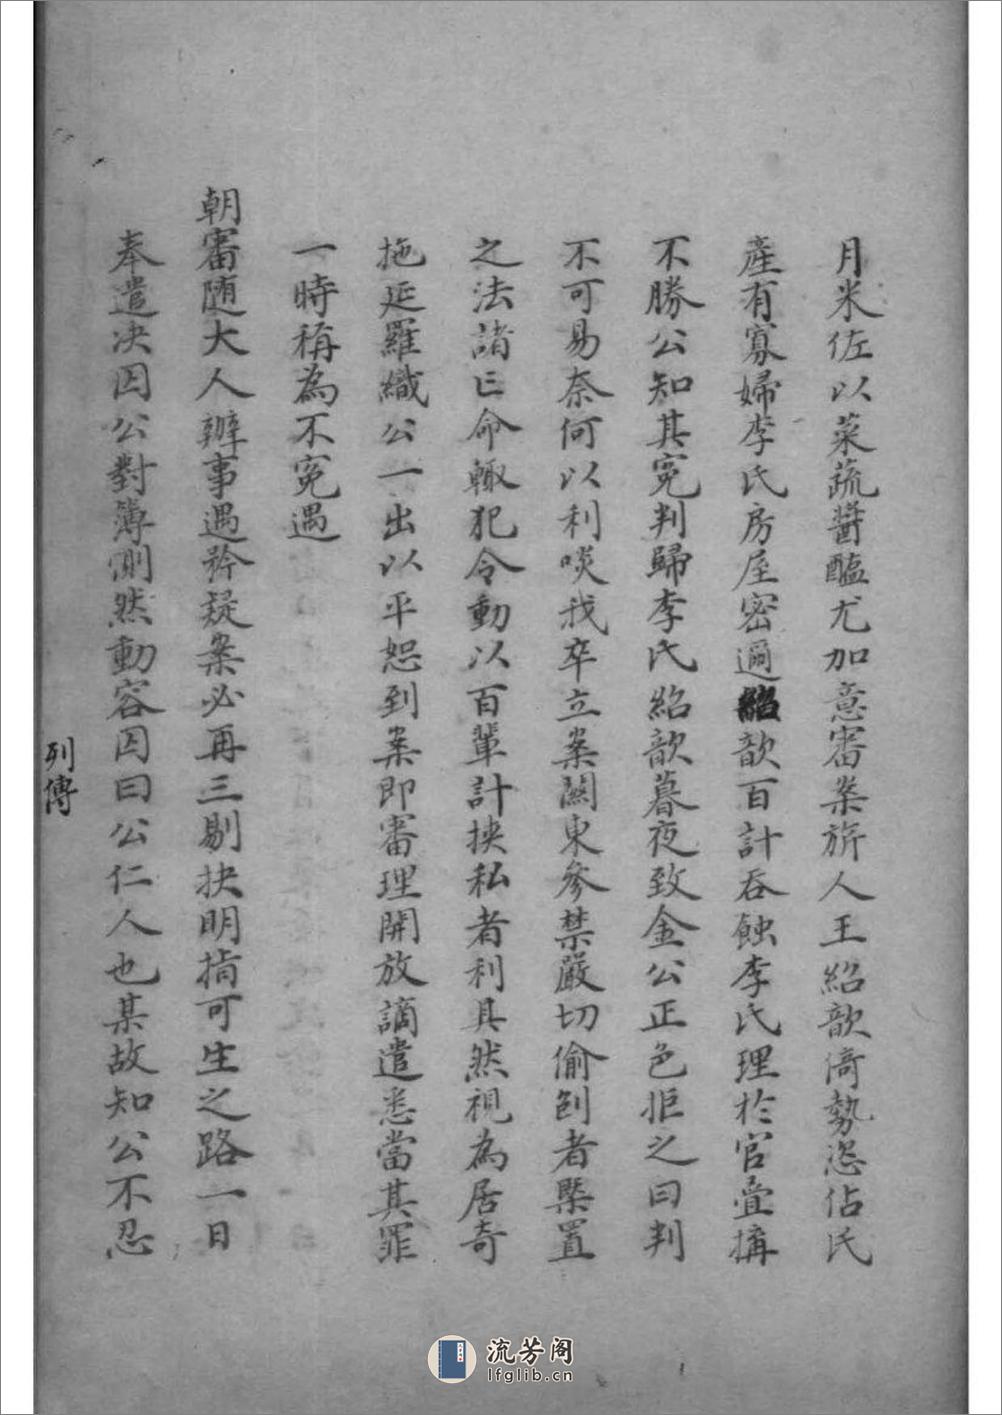 月米佐以菜蔬醬醢尤加意審案旂人王紹歆倚勢恣佔民
產有寡婦李氏房屋密邇紹歆百計吞蝕李氏理於官疊搆
不勝公知其冤判歸李氏紹歆暮夜致金公正色拒之曰判
不可易奈何以利啖我卒立案關東參禁嚴切偷刨者槩置
之法諸亡命輙犯令動以百輩計挾私者利其然視為居奇
拖延羅織公一出以平恕到案即審理開放謫遣悉當其罪
一時稱為不冤遇
朝審随大人辦事遇矜疑案必再三剔抉明指可生之路一日
奉遣决囚公對簿惻然動容囚曰公仁人也某故知公不忍
列傳
流芳阁
lfglib.cn